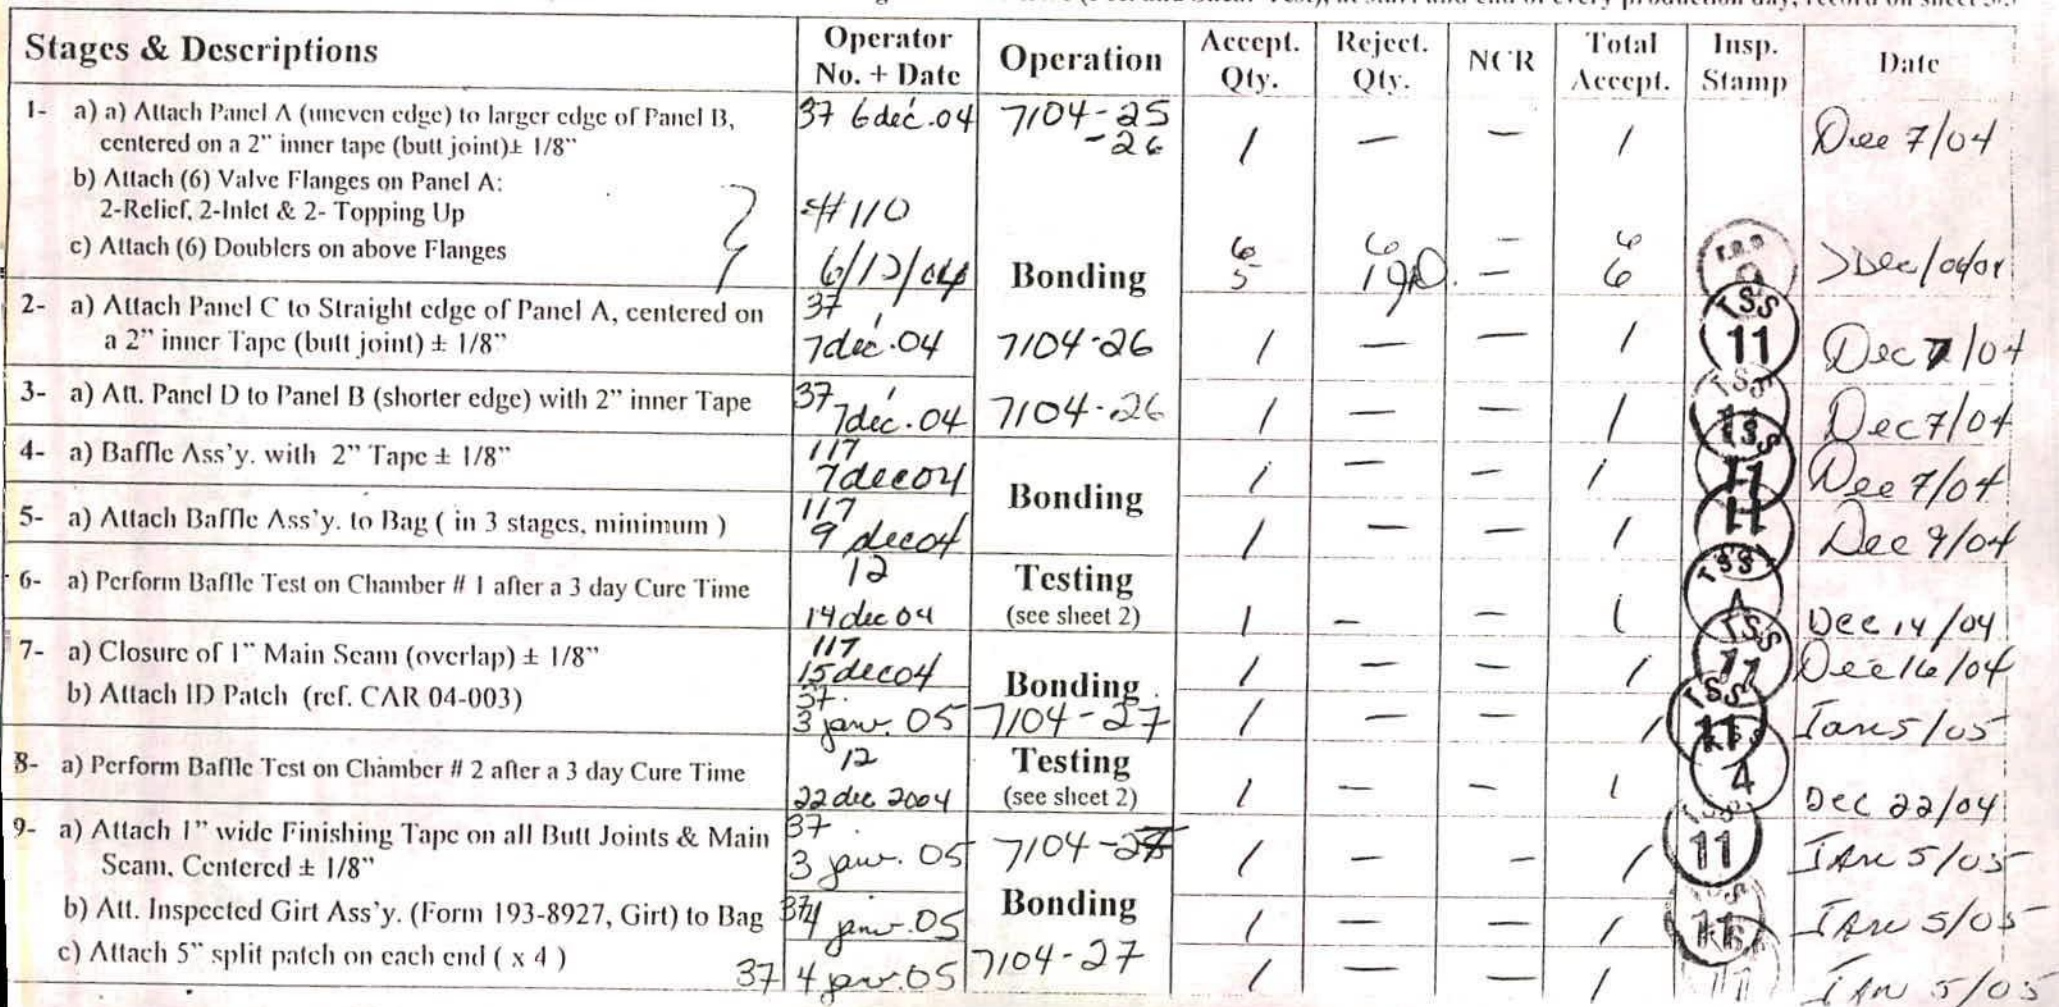 Stages & Descriptions Operator No. + Date Operation Accept. Qty. Reject. Qty. NCR Total Accept. Insp. Stamp Date
1- a) a) Attach Panel A (uneven edge) to larger edge of Panel B, 37 6 déc.04 7104-25 1 — — 1 Dec 7/04
centered on a 2" inner tape (butt joint)± 1/8" -26
b) Attach (6) Valve Flanges on Panel A:
2-Relief, 2-Inlet & 2- Topping Up #110
c) Attach (6) Doublers on above Flanges 6/12/04 Bonding 6 6 — 6
5 1 — 6
2- a) Attach Panel C to Straight edge of Panel A, centered on 37 TSS
a 2" inner Tape (butt joint) ± 1/8" 7 déc.04 7104-26 1 — — 1 11 Dec 7/04
3- a) Att. Panel D to Panel B (shorter edge) with 2" inner Tape 37 7 déc.04 7104-26 1 — — 1 11 Dec 7/04
4- a) Baffle Ass'y. with 2" Tape ± 1/8" 117 7 dec 04 1 — — 1 11 Dec 7/04
Bonding
5- a) Attach Baffle Ass'y. to Bag ( in 3 stages, minimum ) 117 9 dec 04 1 — — 1 11 Dec 9/04
6- a) Perform Baffle Test on Chamber # 1 after a 3 day Cure Time 12 Testing TSS
14 dec 04 (see sheet 2) 1 — — 1 Dec 14/04
7- a) Closure of 1" Main Seam (overlap) ± 1/8" 117 15 dec 04 1 — — 1 TSS 11 Dec 16/04
b) Attach ID Patch (ref. CAR 04-003) 37 Bonding TSS
3 janv. 05 7104-27 1 — — 1 11 Jan 5/05
8- a) Perform Baffle Test on Chamber # 2 after a 3 day Cure Time 12 Testing 4
22 dec 2004 (see sheet 2) 1 — — 1 Dec 22/04
9- a) Attach 1" wide Finishing Tape on all Butt Joints & Main 37
Seam, Centered ± 1/8" 3 janv. 05 7104-27 1 — — 1 11 JAN 5/05
b) Att. Inspected Girt Ass'y. (Form 193-8927, Girt) to Bag 37 4 janv.05 Bonding 1 — — 1 11 JAN 5/05
c) Attach 5" split patch on each end ( x 4 ) 37 4 janv.05 7104-27 1 — — 1 11 JAN 5/05